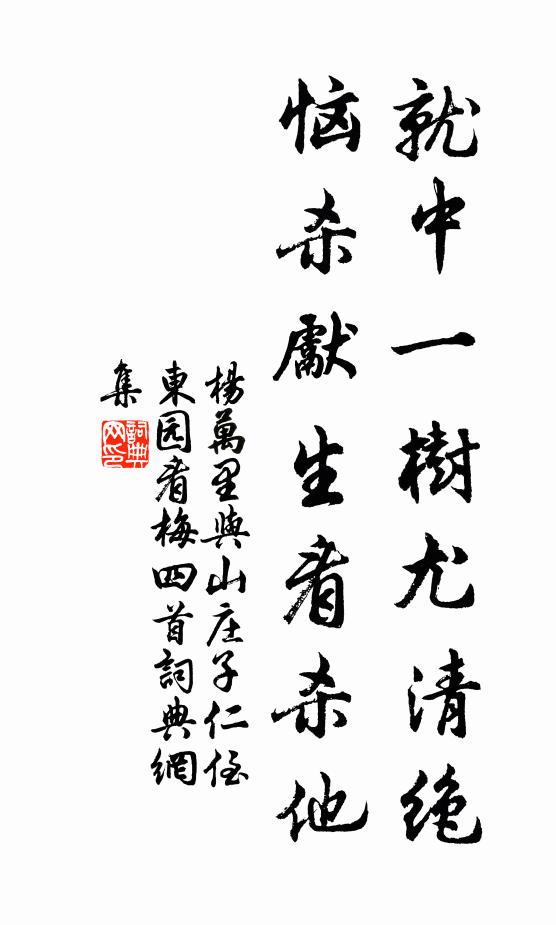 就中一樹尤清絶
恼杀獻生看杀他
楊萬里與山庄子仁侄
東园看梅四首詞典網
集
詞典
网印